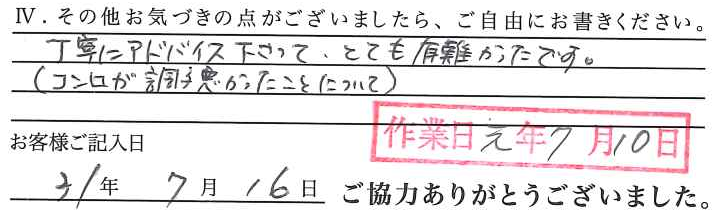 Ⅳ．その他お気づきの点がございましたら、ご自由にお書きください。
丁寧にアドバイス下さって、とても有難かったです。
(コンロが調子悪かったことについて)
作業日元年7月10日
お客様ご記入日
31年 7月 16日 ご協力ありがとうございました。